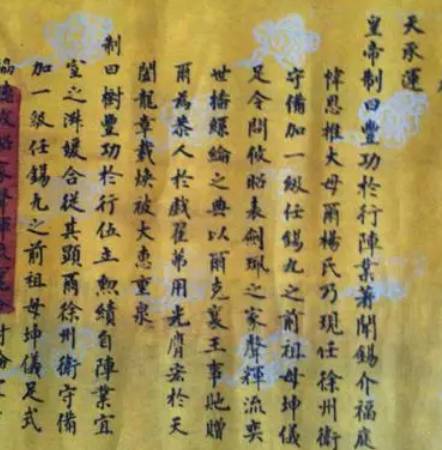 天承運
皇帝制曰豐功於行陣業著聞錫介福庭
幃恩推大母爾楊氏乃現任徐州衛
守備加一級任錫九之前祖母坤儀
足令問攸昭表劍珮之家聲輝流奕
世播綸之典以爾克襄王事貤贈
爾為恭人於戲翟茀用光膺宏於天
閶龍章載煥被大惠重泉
制曰樹豐功於行伍立勲績自陣業宜
室之媛合從其顯爾徐州衛守備
加一級任錫九之前祖母坤儀足式